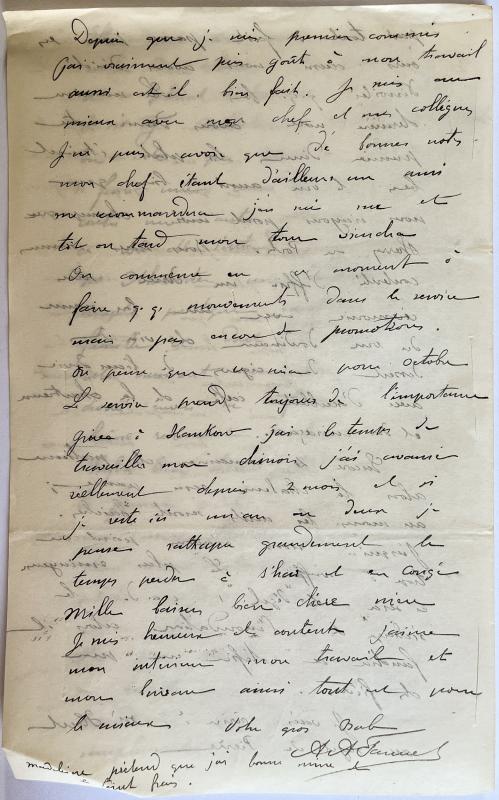 Depuis que je suis premier commis
j'ai vraiment pris goût à mon travail
aussi est il bien fait. Je suis au
mieux avec mon chef et mes collègues
Je ne puis avoir que de bonnes notes
mon chef étant d'ailleurs un ami
me recommandera j'en suis sûr et
tôt ou tard mon tour viendra
On commence en ce moment à
faire q.q. mouvements dans le service
mais pas encore de promotions.
On pense que ce sera pour octobre
Le service prend toujours de l'importance
grâce à Hankow j'ai le temps de
travailler mon chinois j'ai avancé
réellement depuis 2 mois et si
je reste ici un an ou deux je
pense rattraper grandement le
temps perdu à S'haï et en congé
Mille baisers bien chère mère
Je suis heureux et content j'aime
mon intérieur mon travail et
mon bureau ainsi tout est pour
le mieux Votre gros
Madeleine prétend que j'ai bonne mine et
teint frais.